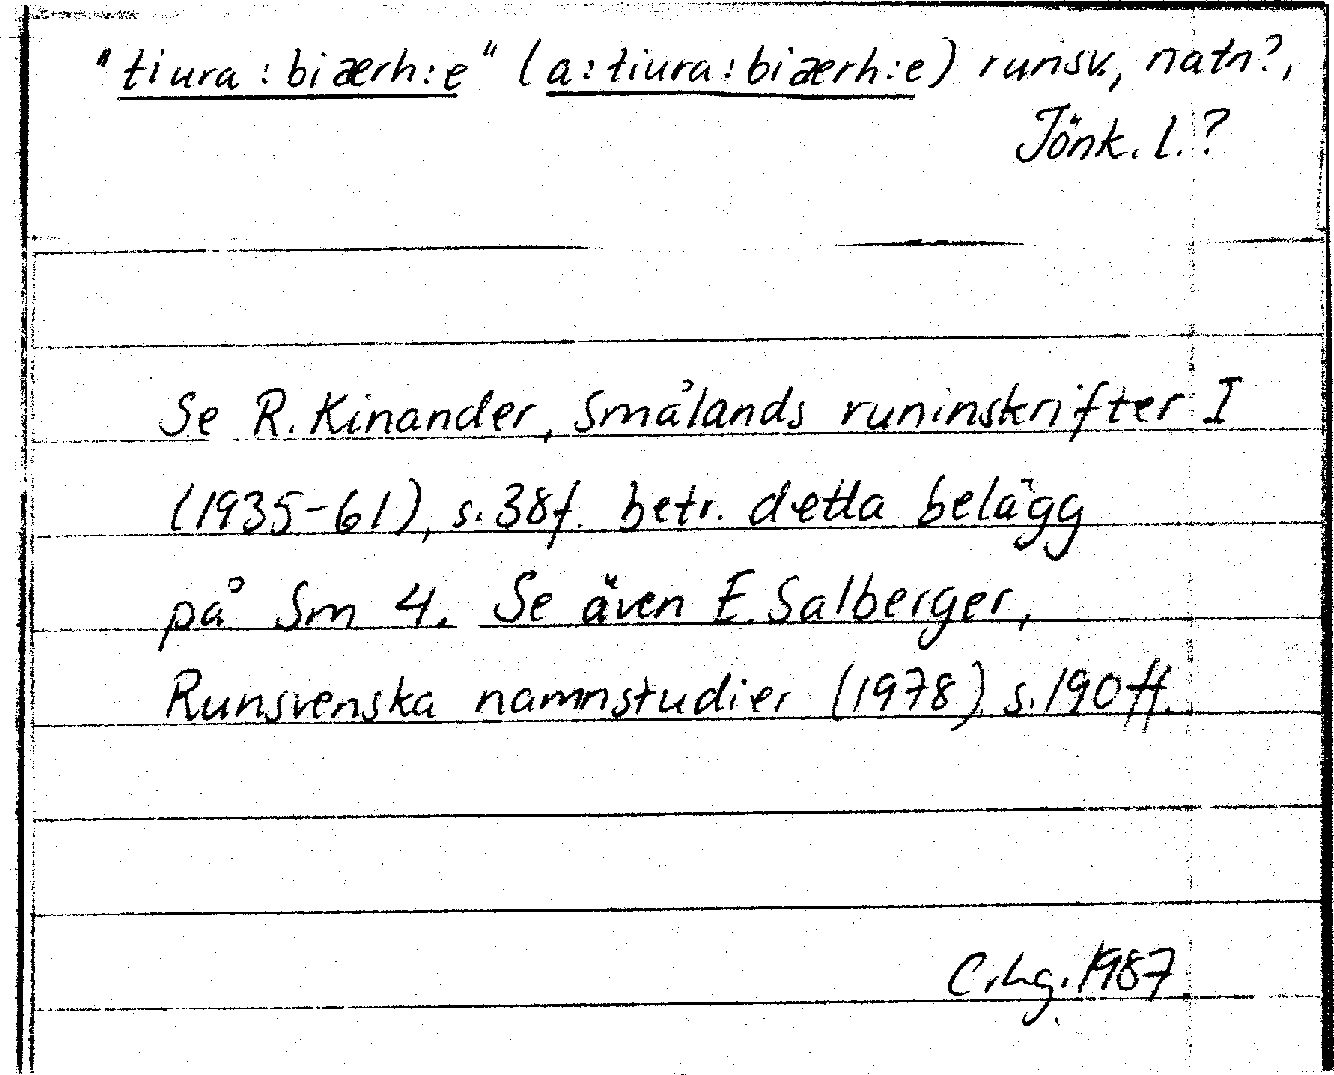 "tiura : biærh:e" (a:tiura:biærh:e) runsv., natn?,
Jönk. l.?
Se R. Kinander, Smålands runinskrifter I
(1935-61), s. 38f. betr. detta belägg
på Sm 4. Se även E. Salberger,
Runsvenska namnstudier (1978) s. 190 ff.
C.hg. 1987